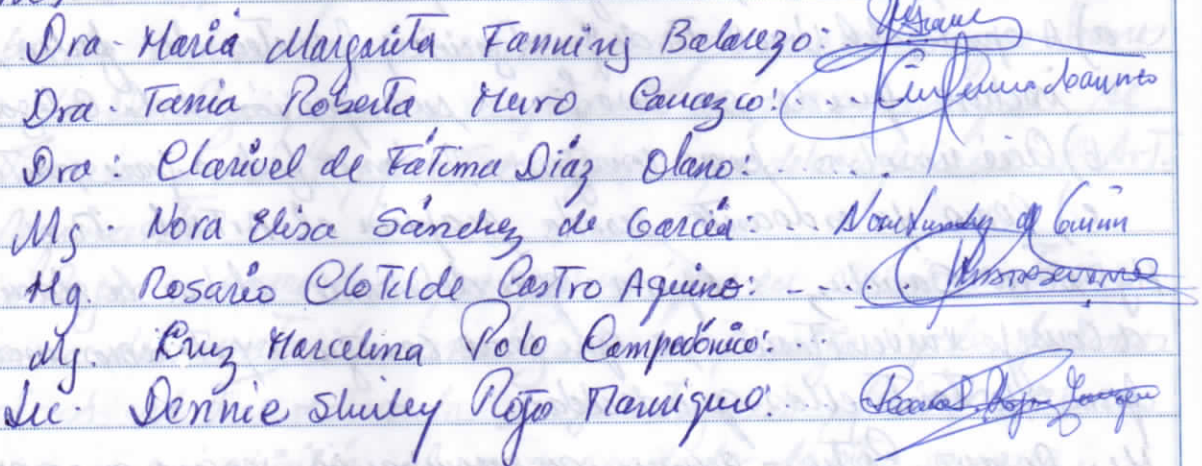 Dra. María Margarita Fanning Balarezo:
Dra. Tania Roberta Muro Carrazco: ....
Dra: Clarivel de Fátima Díaz Olano: ......
Mg. Nora Elisa Sánchez de García: ...
Mg. Rosario Clotilde Castro Aguino: - ....
Mg. Cruz Marcelina Polo Campodónico: ...
Lic. Dennie Shirley Rojo Manrique: ...